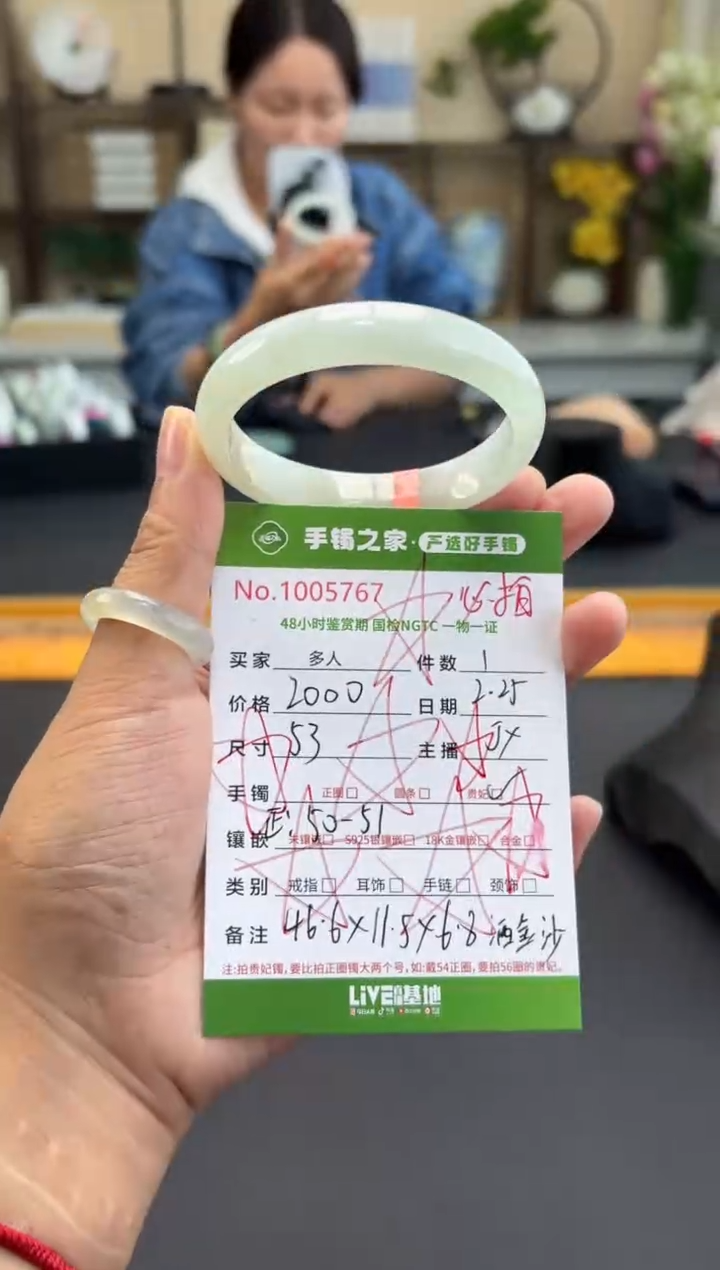 手镯之家·严选好手镯
No.1005767 必拍
48小时鉴赏期 国检NGTC 一物一证
买家 多人 件数 1
价格 2000 日期 2.25
尺寸 53 主播
手镯 正圈□ 圆条□ 贵妃□
正:50-51
镶嵌 未镶嵌□ S925银镶嵌□ 18K金镶嵌□ 合金□
类别 戒指□ 耳饰□ 手链□ 颈饰□
备注 46.6×11.5×6.8 洒金沙
注:拍贵妃镯,要比拍正圈镯大两个号,如:戴54正圈,要拍56圈的贵妃。
LiVE 基地